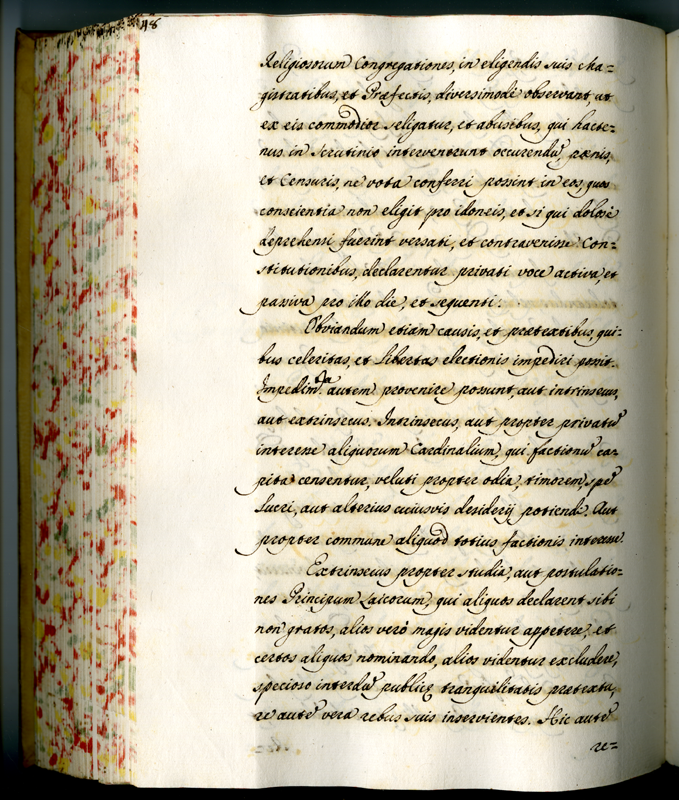 48
Religiosorum Congregationes, in eligendis suis Ma=
gistratibus, et Præfectis, diversimodè observant, ut
ex eis commodior seligatur, et abusibus, qui hacte=
nus in scrutinio intervenerunt occurendũ pœnis,
et Censuris, ne vota conferri possint in eos, quos
conscientia non eligit pro idoneis, et si qui dolosè
deprehensi fuerint versati, et contravenisse Con=
stitutionibus, declarentur privati voce activa, et
passiva pro illo die, et sequenti.
Obviandum etiam causis, et prætextibus, qui=
bus celeritas, et libertas electionis impediri possit.
Impedim.ta autem provenire possunt, aut intrinsecus,
aut extrinsecus. Intrinsecus, aut propter privatũ
interesse aliquorum Cardinalium, qui factionũ ca=
pita censentur, veluti propter odia, timorem, spẽ
lucri, aut alterius cuiusvis desiderij potiendi. Aut
propter commune aliquod totius factionis interesse.
Extrinsecus propter studia, aut postulatio=
nes Principum Laicorum, qui aliquos declarent sibi
non gratos, alios verò magis videntur appetere, et
certos aliquos nominando, alios videntur excludere,
specioso interdũ publicę tranquilitatis prætextu,
re autẽ vera rebus suis inservientes. Hic autẽ
re=